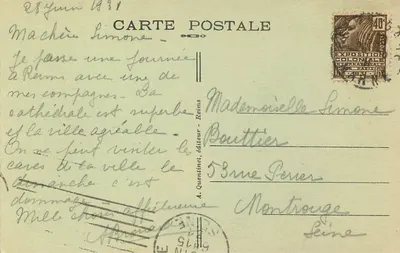 28 Juin 1931
CARTE POSTALE
Ma chère Simone -
Je passe une journée
à Reims avec une de
mes compagnes. La
cathédrale est superbe
et la ville agréable.
On ne peut visiter les
caves de la ville le
dimanche c'est
dommage.
Mille choses affectueuses
A. Quentinet, éditeur - Reims
40c
EXPOSITION
COLONIALE
Mademoiselle Simone
Bouttier
53 rue Périer
Montrouge
Seine